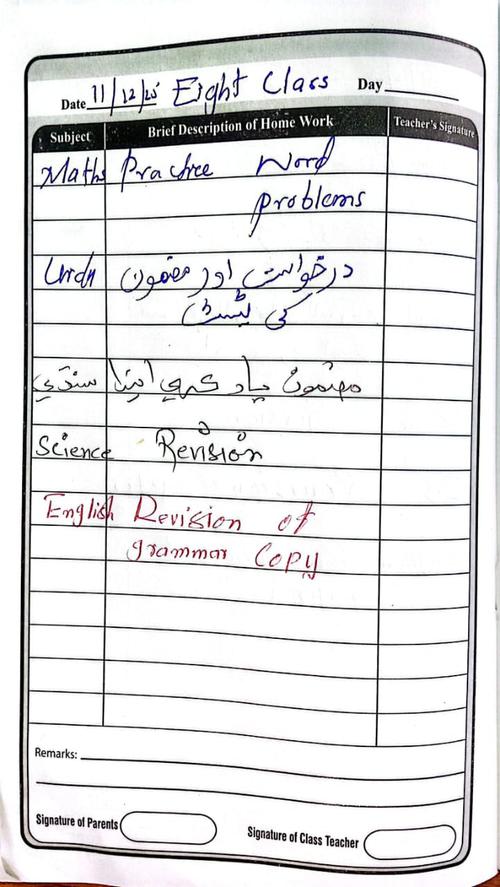 Date 11/12/25 Eight Class Day
Subject Brief Description of Home Work Teacher's Signature
Maths Practice Word
problems
Urdu درخواست اور مضمون
کی ٹیسٹ
سنڌي مضمون ياد ڪري اينا
Science Revision
English Revision of
grammar Copy
Remarks:
Signature of Parents Signature of Class Teacher